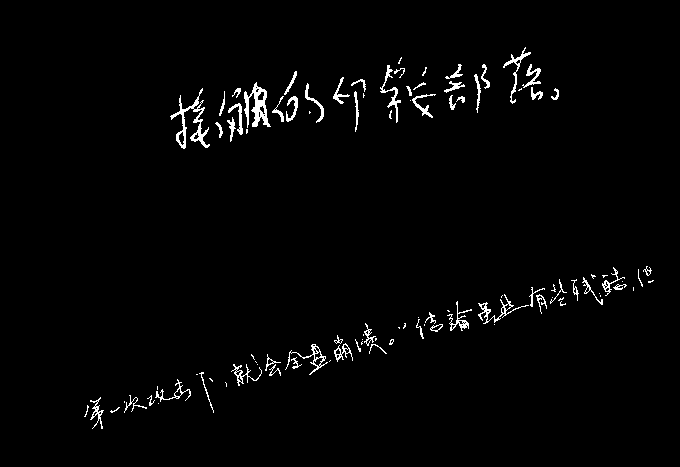 接触的印第安部落。
第一次攻击下，就会全盘崩溃。”结论虽然有些残酷，但